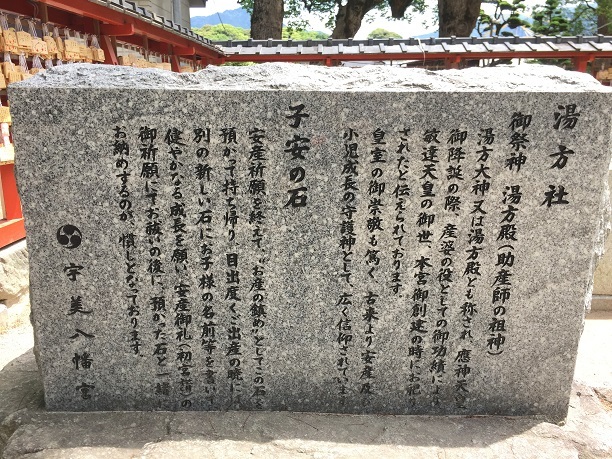 湯方社
御祭神 湯方殿(助産師の祖神)
湯方大神又は湯方殿とも称され、應神天皇
御降誕の際、産婆の役としての御功績により
敏達天皇の御世、本宮御創建の時にお祀
されたと伝えられております。
皇室の御崇敬も篤く、古来より安産及
小児成長の守護神として、広く信仰されていま
子安の石
安産祈願を終えて、"お産の鎮め"としてこの石を
預かって持ち帰り、目出度くご出産の暁に
別の新しい石にお子様の名前等を書い
健やかなる成長を願い、安産御礼(初宮詣)の
御祈願にてお祓いの後に、預かった石と一緒
お納めするのが、慣しとなっております。
宇美八幡宮